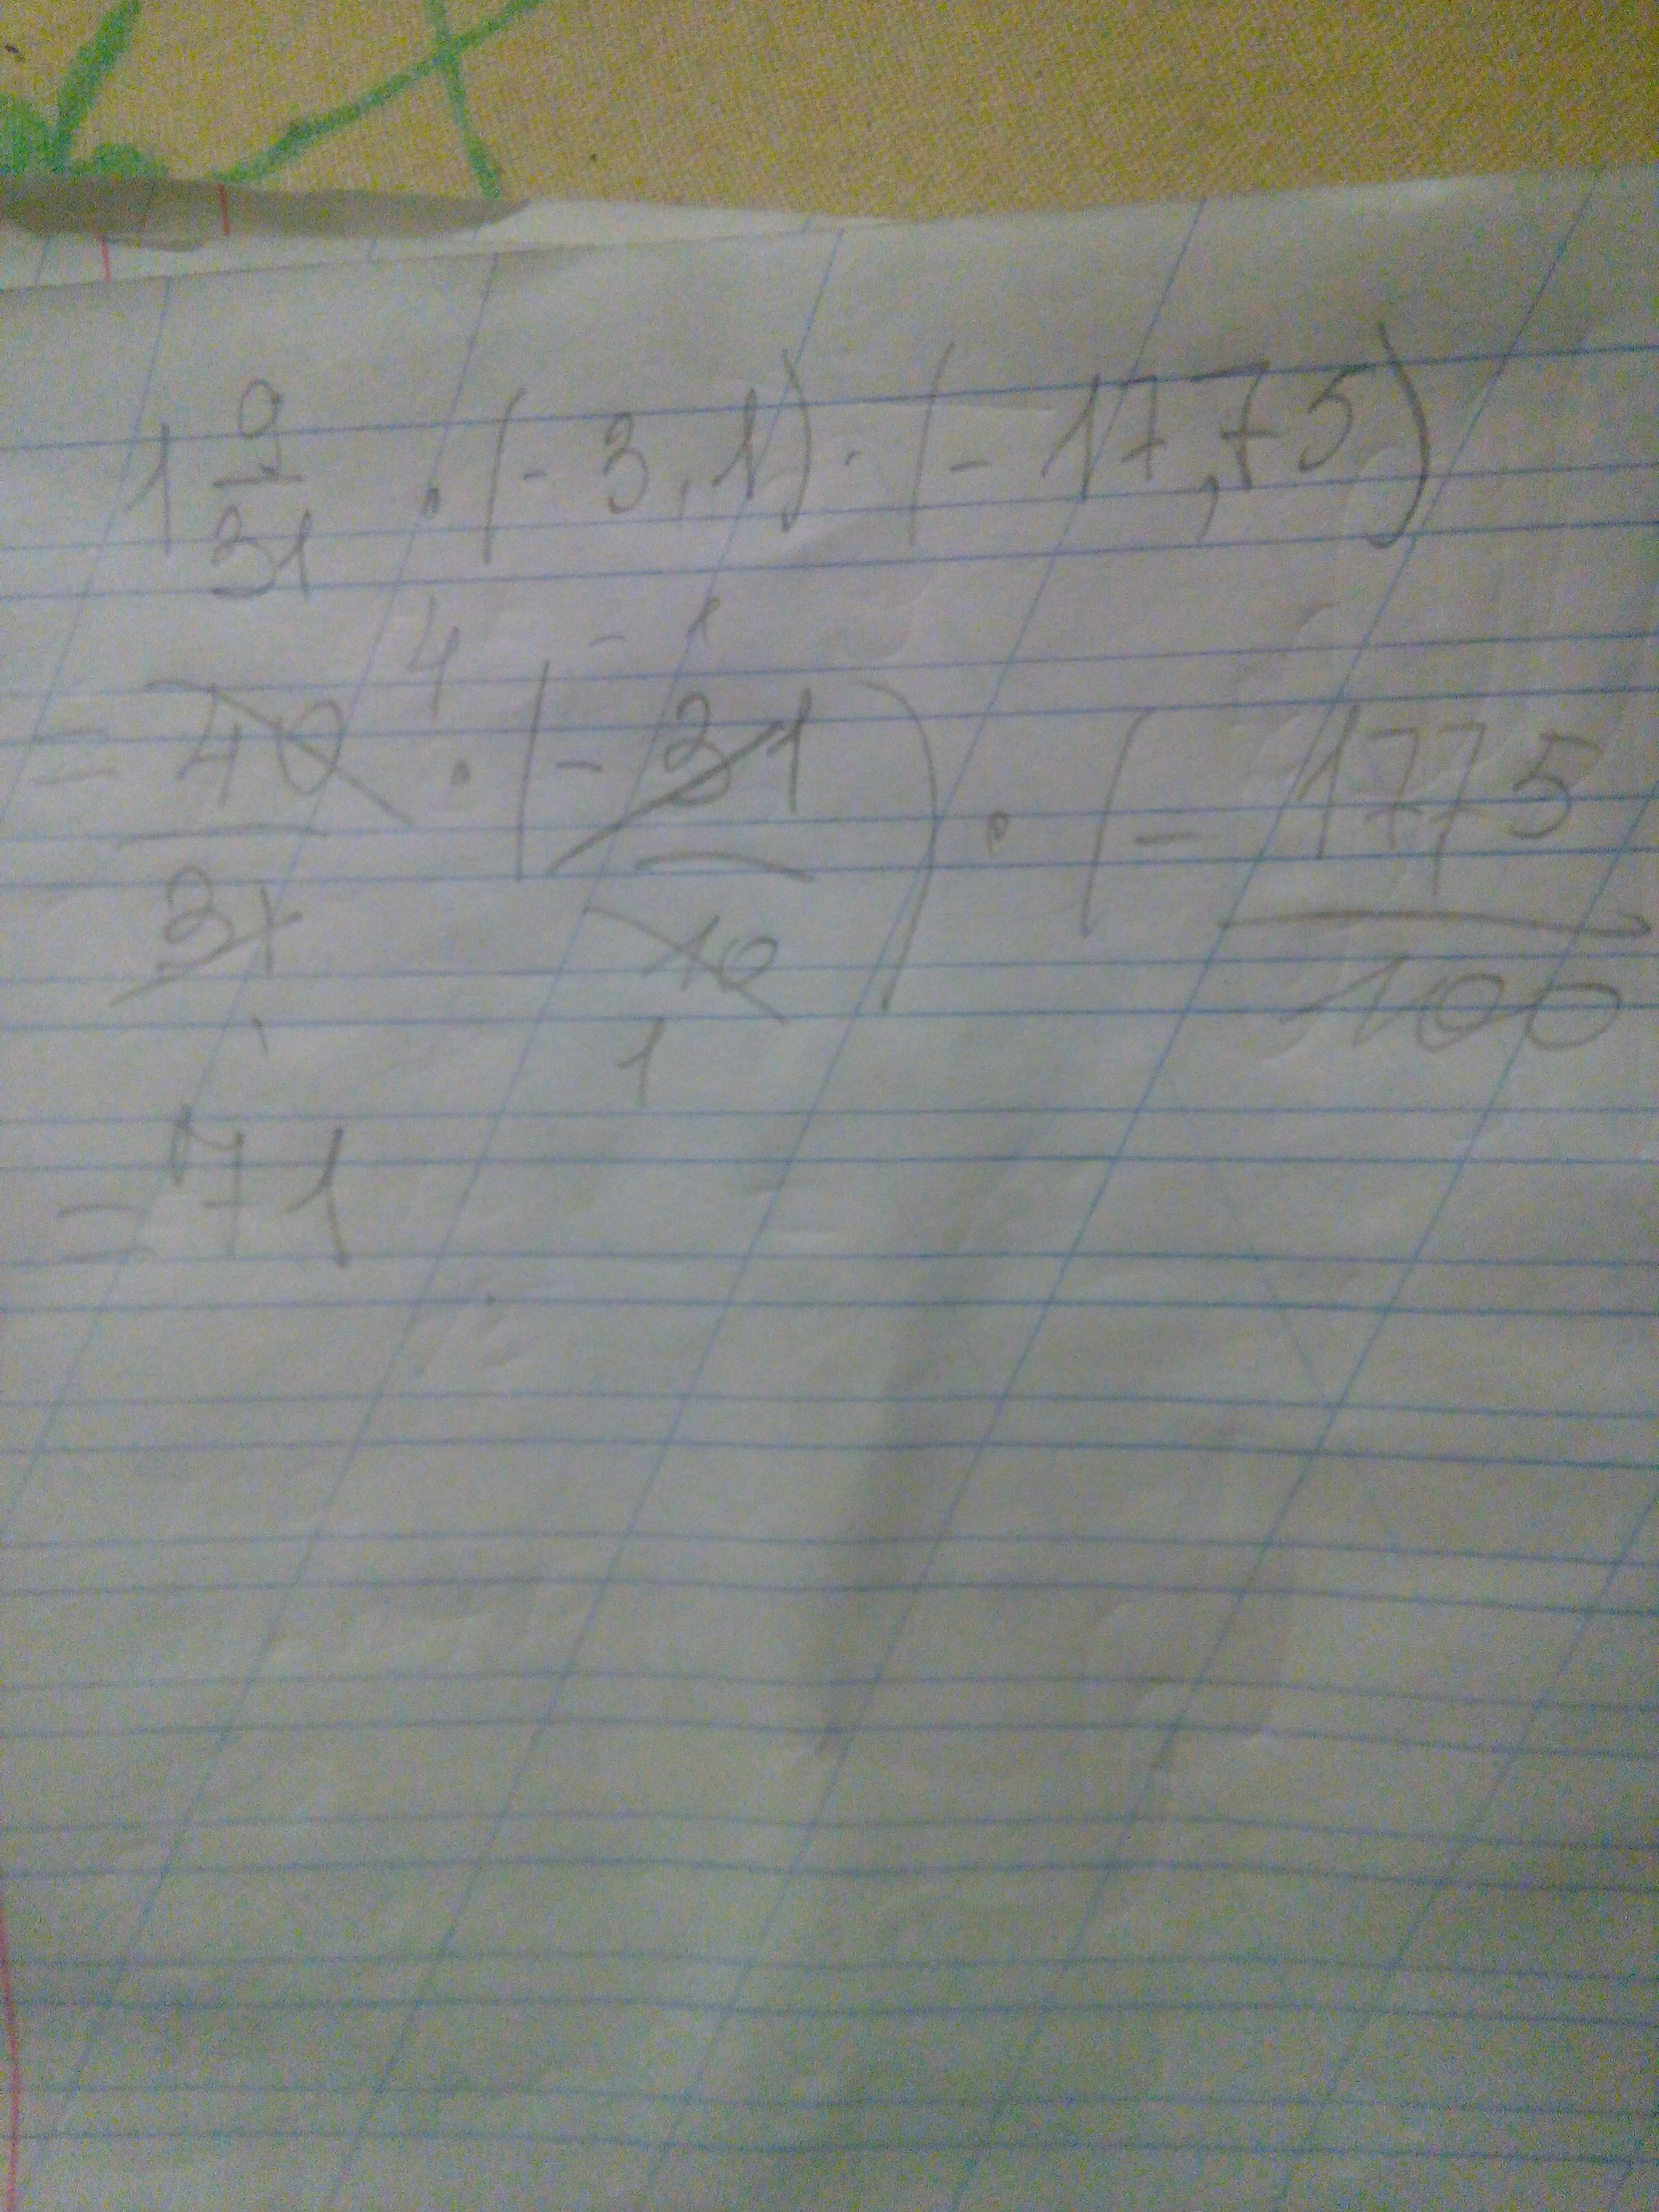 1 9/31 · (- 3,1) · (- 17,75)
= 40/31 4 · (- 31/10) - 1 · (- 1775/100
1 1
= 71